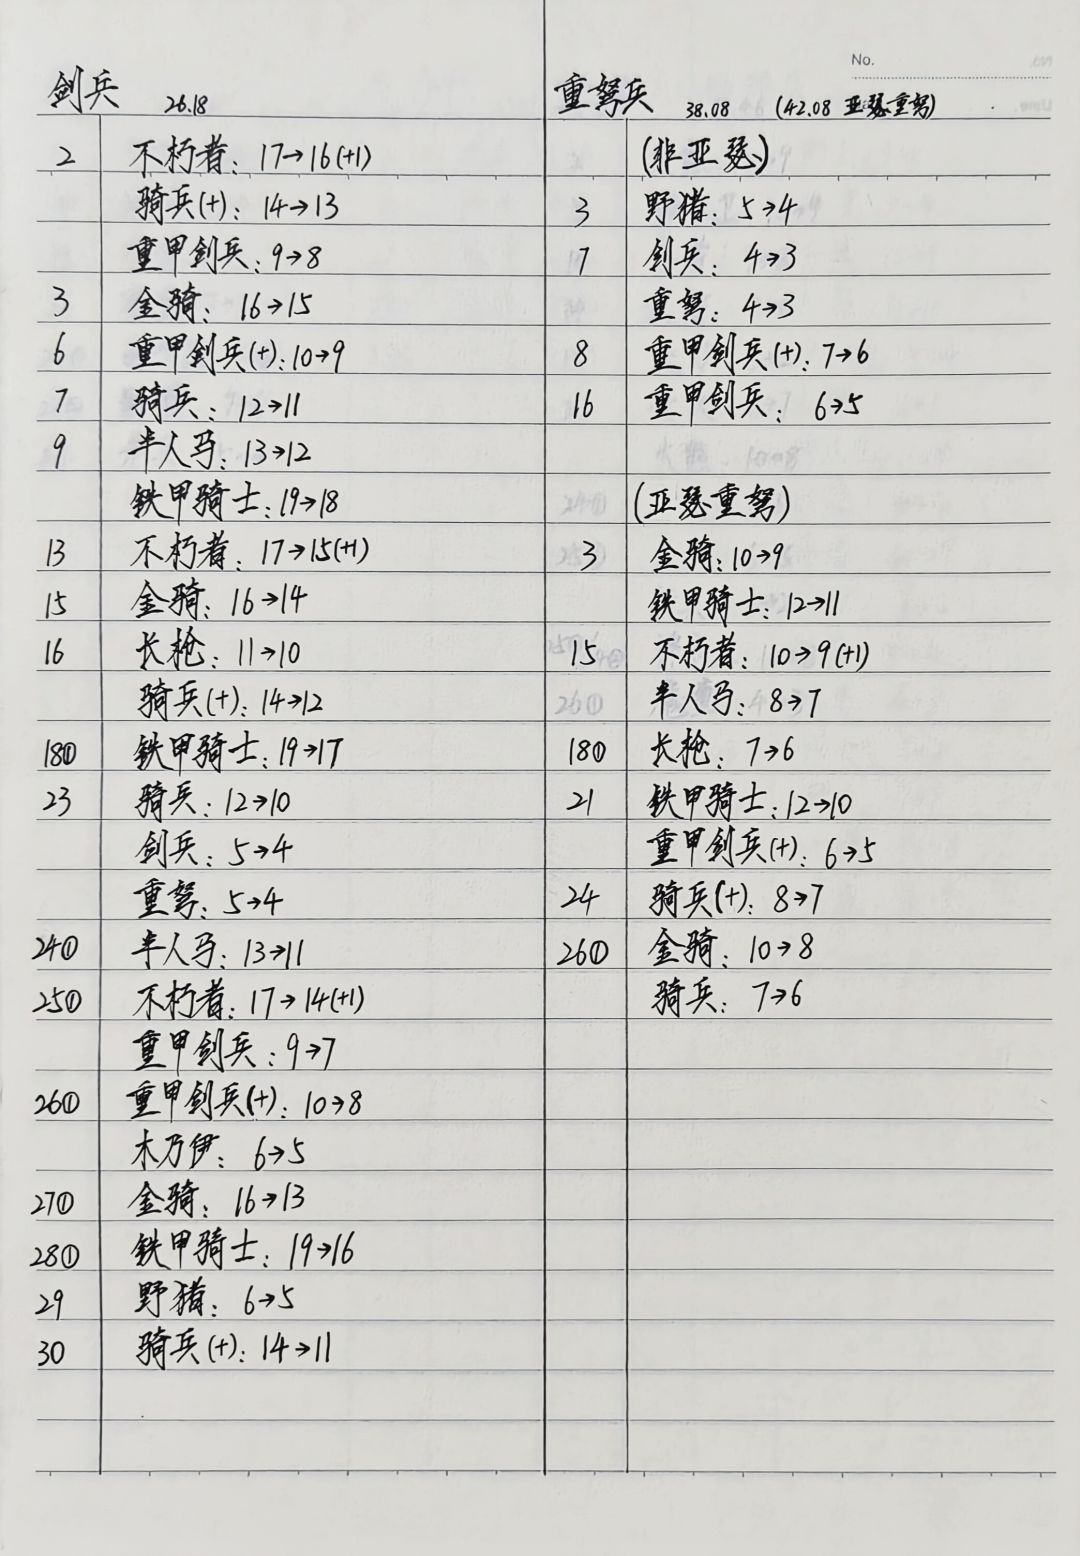 No.
剑兵 26.18
2 不朽者: 17→16(+1)
骑兵(+): 14→13
重甲剑兵: 9→8
3 金骑: 16→15
6 重甲剑兵(+): 10→9
7 骑兵: 12→11
9 半人马: 13→12
铁甲骑士: 19→18
13 不朽者: 17→15(+1)
15 金骑: 16→14
16 长枪: 11→10
骑兵(+): 14→12
18① 铁甲骑士: 19→17
23 骑兵: 12→10
剑兵: 5→4
重弩: 5→4
24① 半人马: 13→11
25① 不朽者: 17→14(+1)
重甲剑兵: 9→7
26① 重甲剑兵(+): 10→8
木乃伊: 6→5
27① 金骑: 16→13
28① 铁甲骑士: 19→16
29 野猪: 6→5
30 骑兵(+): 14→11
重弩兵 38.08 (42.08 亚瑟重弩)
(非亚瑟)
3 野猪: 5→4
7 剑兵: 4→3
重弩: 4→3
8 重甲剑兵(+): 7→6
16 重甲剑兵: 6→5
(亚瑟重弩)
3 金骑: 10→9
铁甲骑士: 12→11
15 不朽者: 10→9(+1)
半人马: 8→7
18① 长枪: 7→6
21 铁甲骑士: 12→10
重甲剑兵(+): 6→5
24 骑兵(+): 8→7
26① 金骑: 10→8
骑兵: 7→6